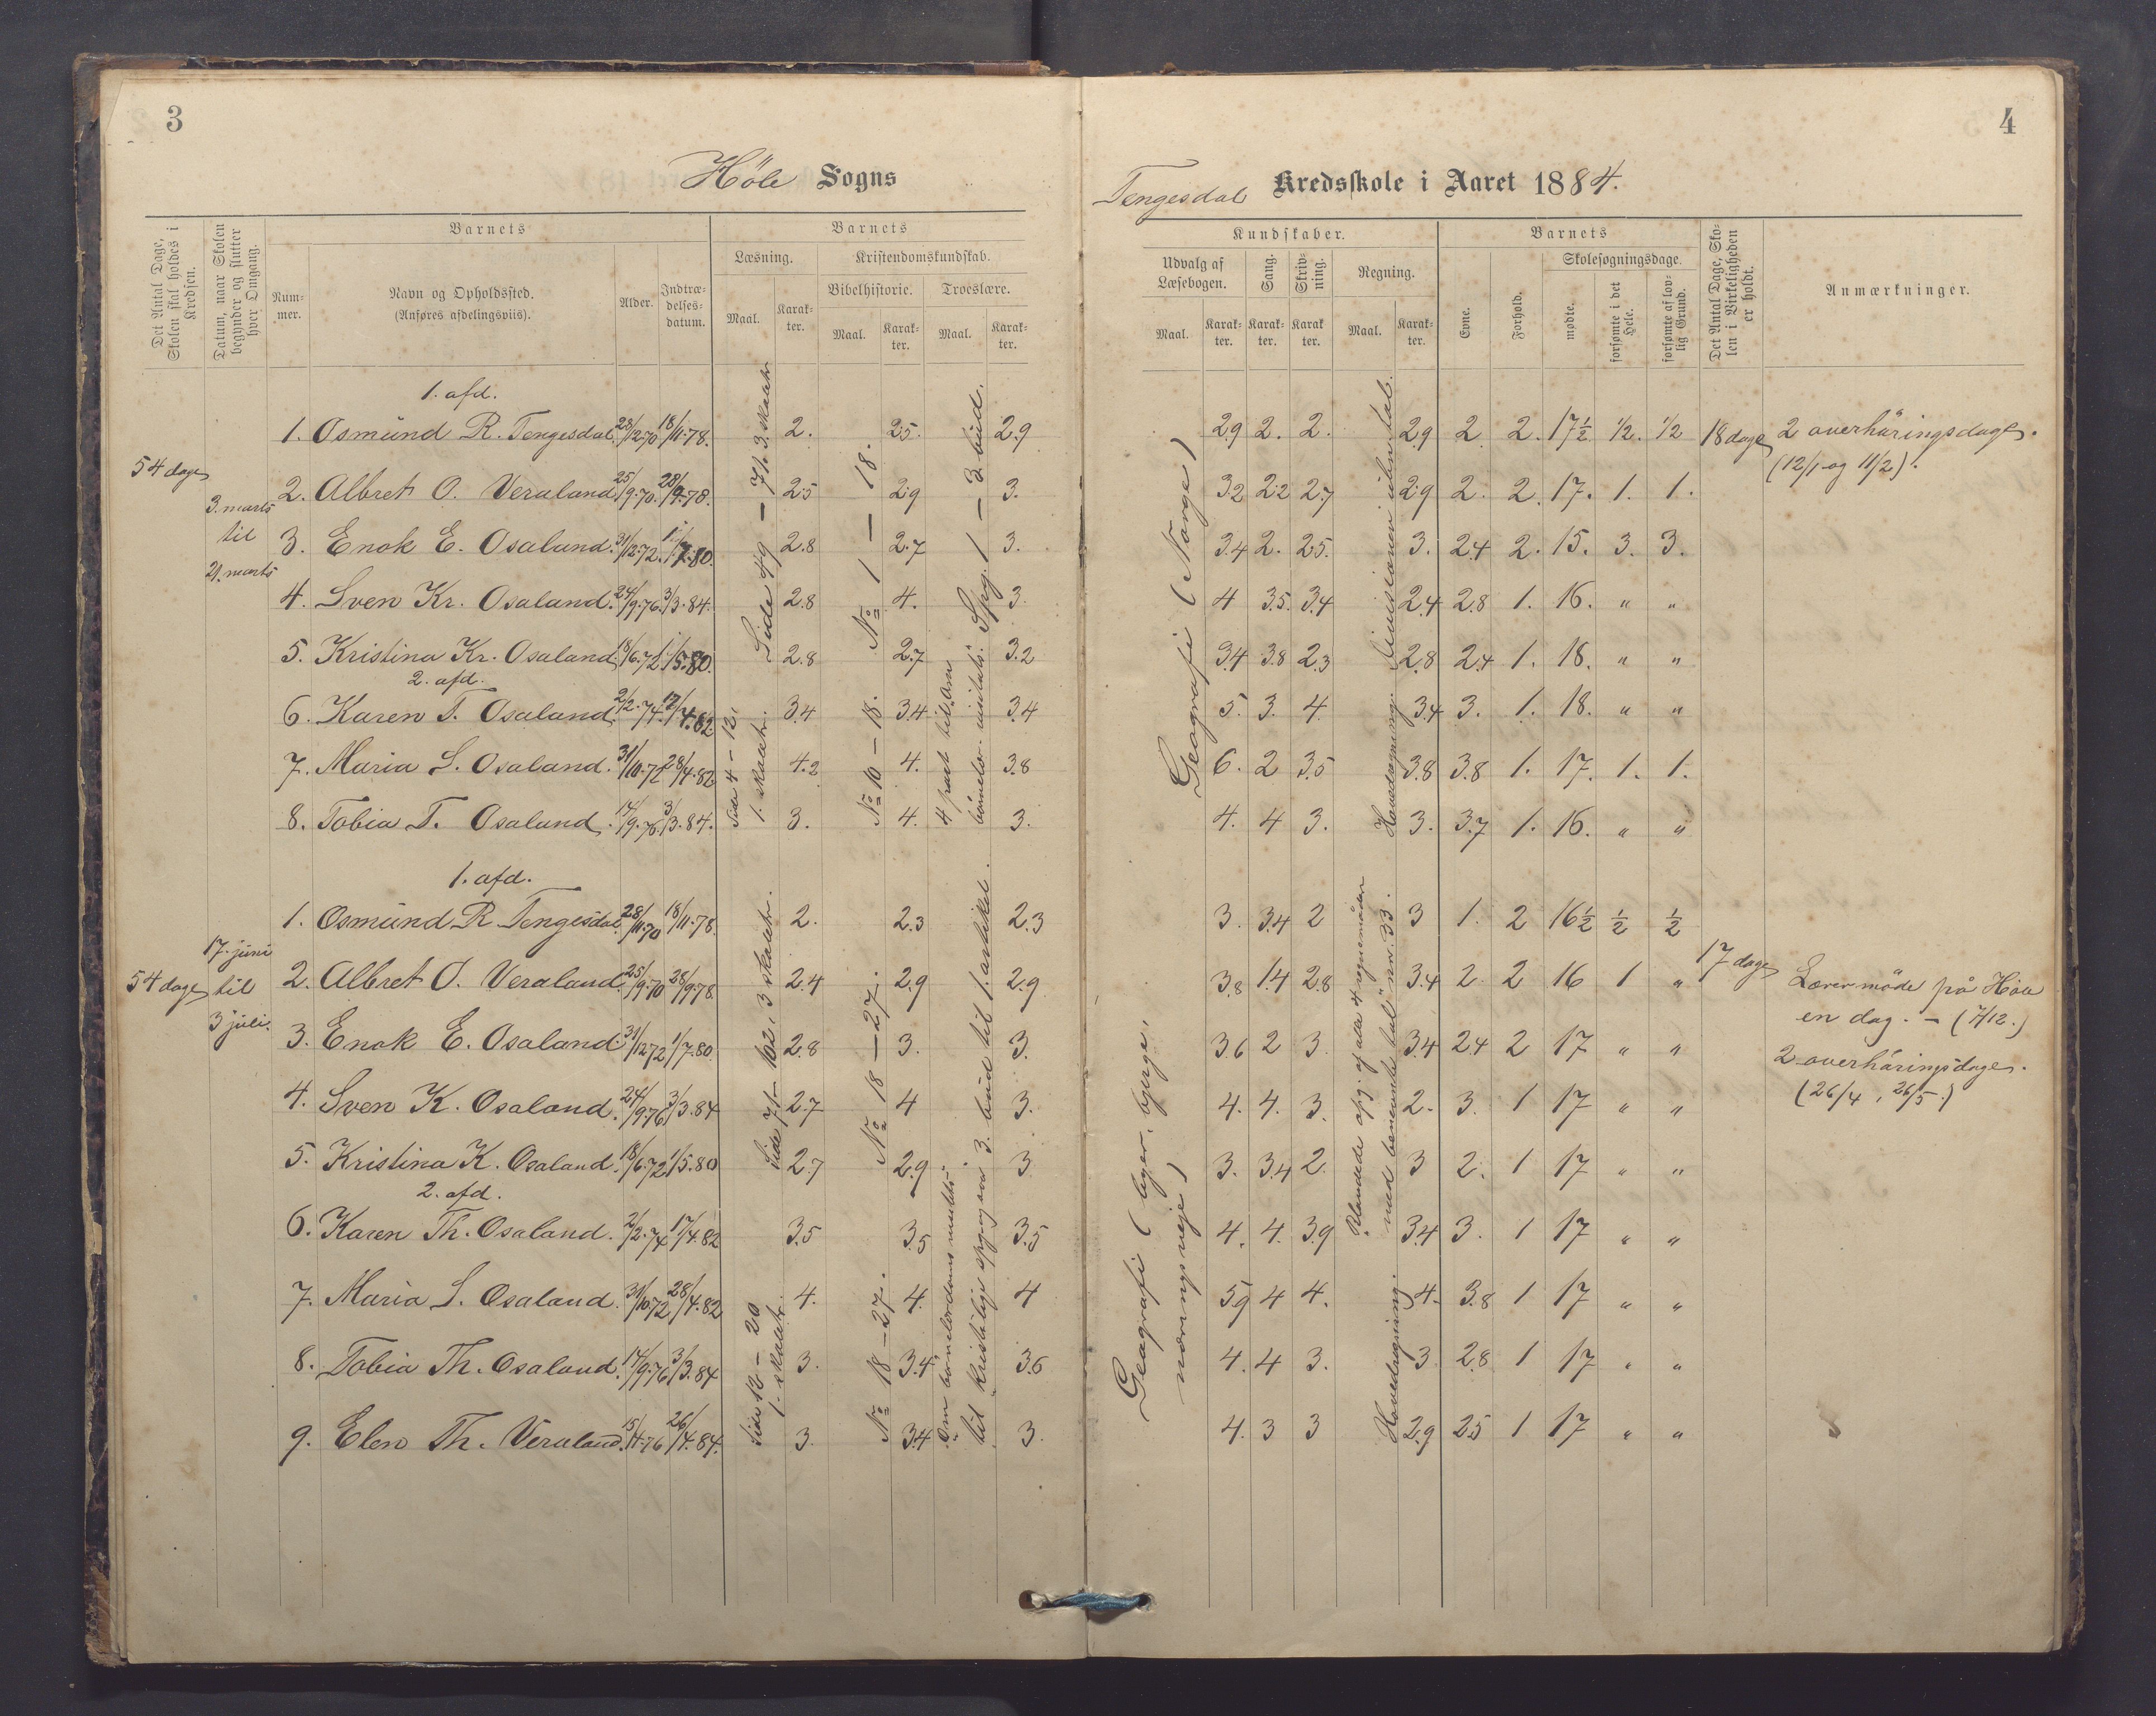 3
Höle Sogns
Det Antal Dage, Skolen skal holdes i Kredsen.
Datum, naar Skolen begynder og slutter hver Omgang.
Barnets
Num-mer.
Navn og Opholdssted.
(Anføres afdelingsviis).
Alder.
Indtræ-delses-datum.
Barnets
Læsning.
Maal.
Karak-ter.
Kristendomskundskab.
Bibelhistorie.
Maal.
Karak-ter.
Troeslære.
Maal.
Karak-ter.
1. afd.
1. Osmund R. Tengesdal 18/11.78. 2. 2.5. 2.9
54 dage
2. Albret O. Veraland 25/9.70. 28/9.78. 2.5 2.9 3.
3. marts
til
21. marts
3. Enok E. Osaland. 31/12.72. 1/7.80. 2.8 2.7 3.
4. Sven Kr. Osaland. 24/9.76. 3/3.84. 2.8 4. 3.
5. Kristina Kr. Osaland 18/6.72. 1/5.80. 2.8 2.7 3.2
2. afd.
6. Karen T. Osaland. 2/2.74. 17/4.82 3.4 3.4 3.4
7. Maria S. Osaland. 31/10.72 28/4.82 4.2 4. 3.8
8. Tobia T. Osaland. 17/9.76. 3/3.84. 3. 4. 3.
Side 49 – 71. 3. skoletr.
No 1 – 18.
Spg. 1 – 3. bud.
Side 4 – 12,
1. skoletr.
No 10 – 18.
4 part til: Om
1. afd.
1. Osmund R Tengesdal. 28/11.70 18/11.78. 2. 2.3 2.3
17. juni
54 dage til
3 juli.
2. Albret O. Veraland. 25/9.70 28/9.78. 2.4 2.9 2.9
3. Enok E. Osaland. 31/12.72 1/7.80. 2.8 3. 3.
4. Sven K. Osaland. 24/9.76 3/3.84 2.7 4 3.
5. Kristina K. Osaland. 18/6.72 1/5.80 2.7 2.9 3.
2. afd.
6. Karen Th. Osaland. 2/2.74 17/4.82 3.5 3.5 3.5
7. Maria S. Osaland. 31/10.72 28/4.82 4. 4. 4
8. Tobia Th. Osaland. 17/9.76 3/3.84 3. 3.4 3.6
9. Elen Th. Veraland. 15/4.76 26/4.84. 3. 3.4 3.
Side 71 – 102, 3 skoletr.
No 18 – 27.
3. bud til 1. artikel.
Side 12 – 20
1. skoletr.
No 18 – 27.
4
Tengesdal Kredsskole i Aaret 1884.
Kundskaber.
Udvalg af Læsebogen.
Maal.
Karak-ter.
Sang.
Karak-ter.
Skriv-ning.
Karak ter.
Regning.
Maal.
Karak-ter.
Barnets
Evne.
Forhold.
Skolesøgningsdage.
mødte.
forsømte i det Hele.
forsømte af lov-lig Grund.
Det Antal Dage, Sko-len i Virkeligheden er holdt.
Anmærkninger.
2.9 2. 2. 2.9 2 2. 17½ ½. ½ 18 dage 2 overhöringsdage.
(12/1 og 11/2).
3.2 2.2 2.7 2.9 2. 2. 17. 1. 1.
3.4 2. 2.5. 3. 2.4 2. 15. 3. 3.
4 3.5. 3.4 2.4 2.8 1. 16. " "
3.4 3.8 2.3 2.8 2.4 1. 18. " "
5. 3. 4. 3.4 3. 1. 18. " "
6. 2 3.5 3.8 3.8 1. 17. 1. 1.
4. 4 3. 3. 3.7 1. 16. " "
Geografi (Norge)
3. 3.4 2 3 1. 2 16½ ½ ½
3.8 1.4 2.8 3.4 2. 2 16 1 " 17 dage
Lærermöde på Höle
en dag. – (7/12.)
3.6 2 3. 3.4 2.4 2 17 " "
2 overhöringsdage.
(26/4, 26/5.)
4. 4. 3. 2. 3. 1 17 " "
3. 3.4 2. 3 2. 1 17 " "
4. 4. 3.9 3.4 3. 1 17 " "
5.9 4 4. 4. 3.8 1 17 " "
4. 4 3. 3 2.8 1 17 " "
4. 3 3 2.9 2.5 1 17 " "
næringsveje)
Hovedregning.